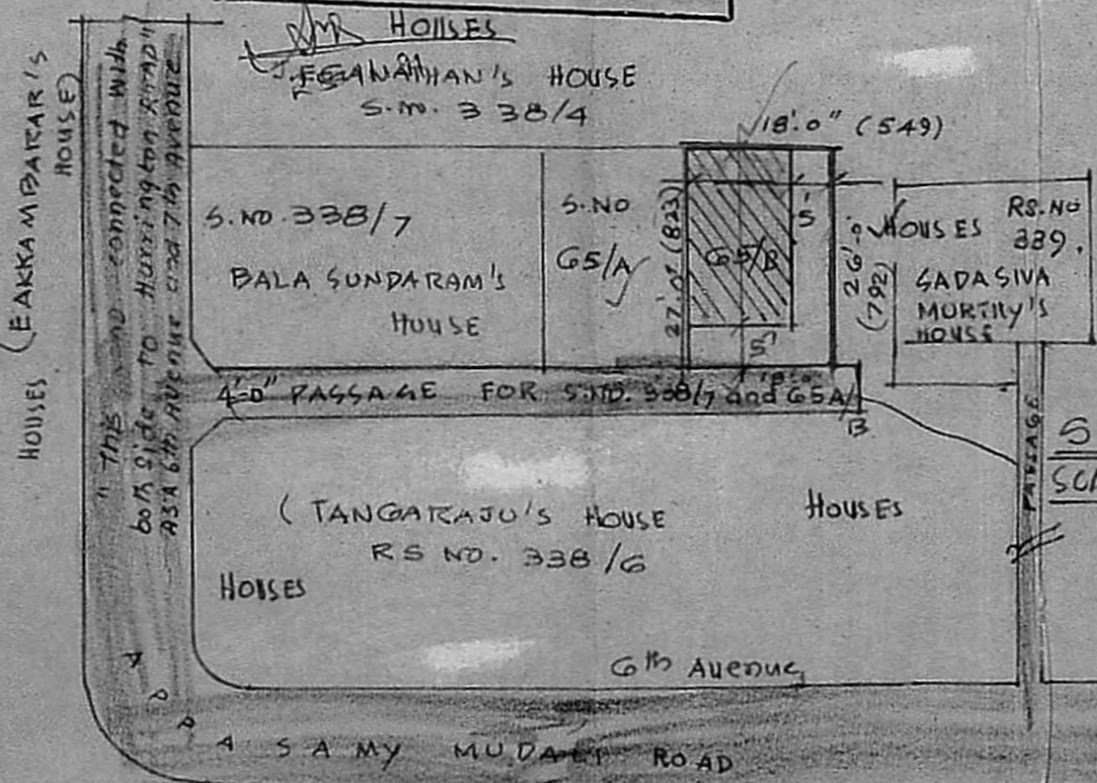 HOUSES
JEGANATHAN's HOUSE
S.No. 338/4
18'.0" (549)
HOUSES (EAKKAMBARAR'S
HOUSE)
"This end connected with
both side to Harrington "ORD"
AS A 6th AVENUE and 7th AVENUE
S.NO. 338/7
BALA SUNDARAM'S
HOUSE
S.NO
65/A
27'.0" (823)
65/B
5'
5'
26'-0"
(792)
HOUSES RS.NO
339.
SADASIVA
MORTHY'S
HOUSE
4'-0" PASSAGE FOR S.NO. 338/7 and 65A/
B
PASSAGE
S
SCA
(TANGARAJU'S HOUSE
RS NO. 338/6
HOUSES
HOUSES
6th Avenue
APPASAMY MUDALI ROAD